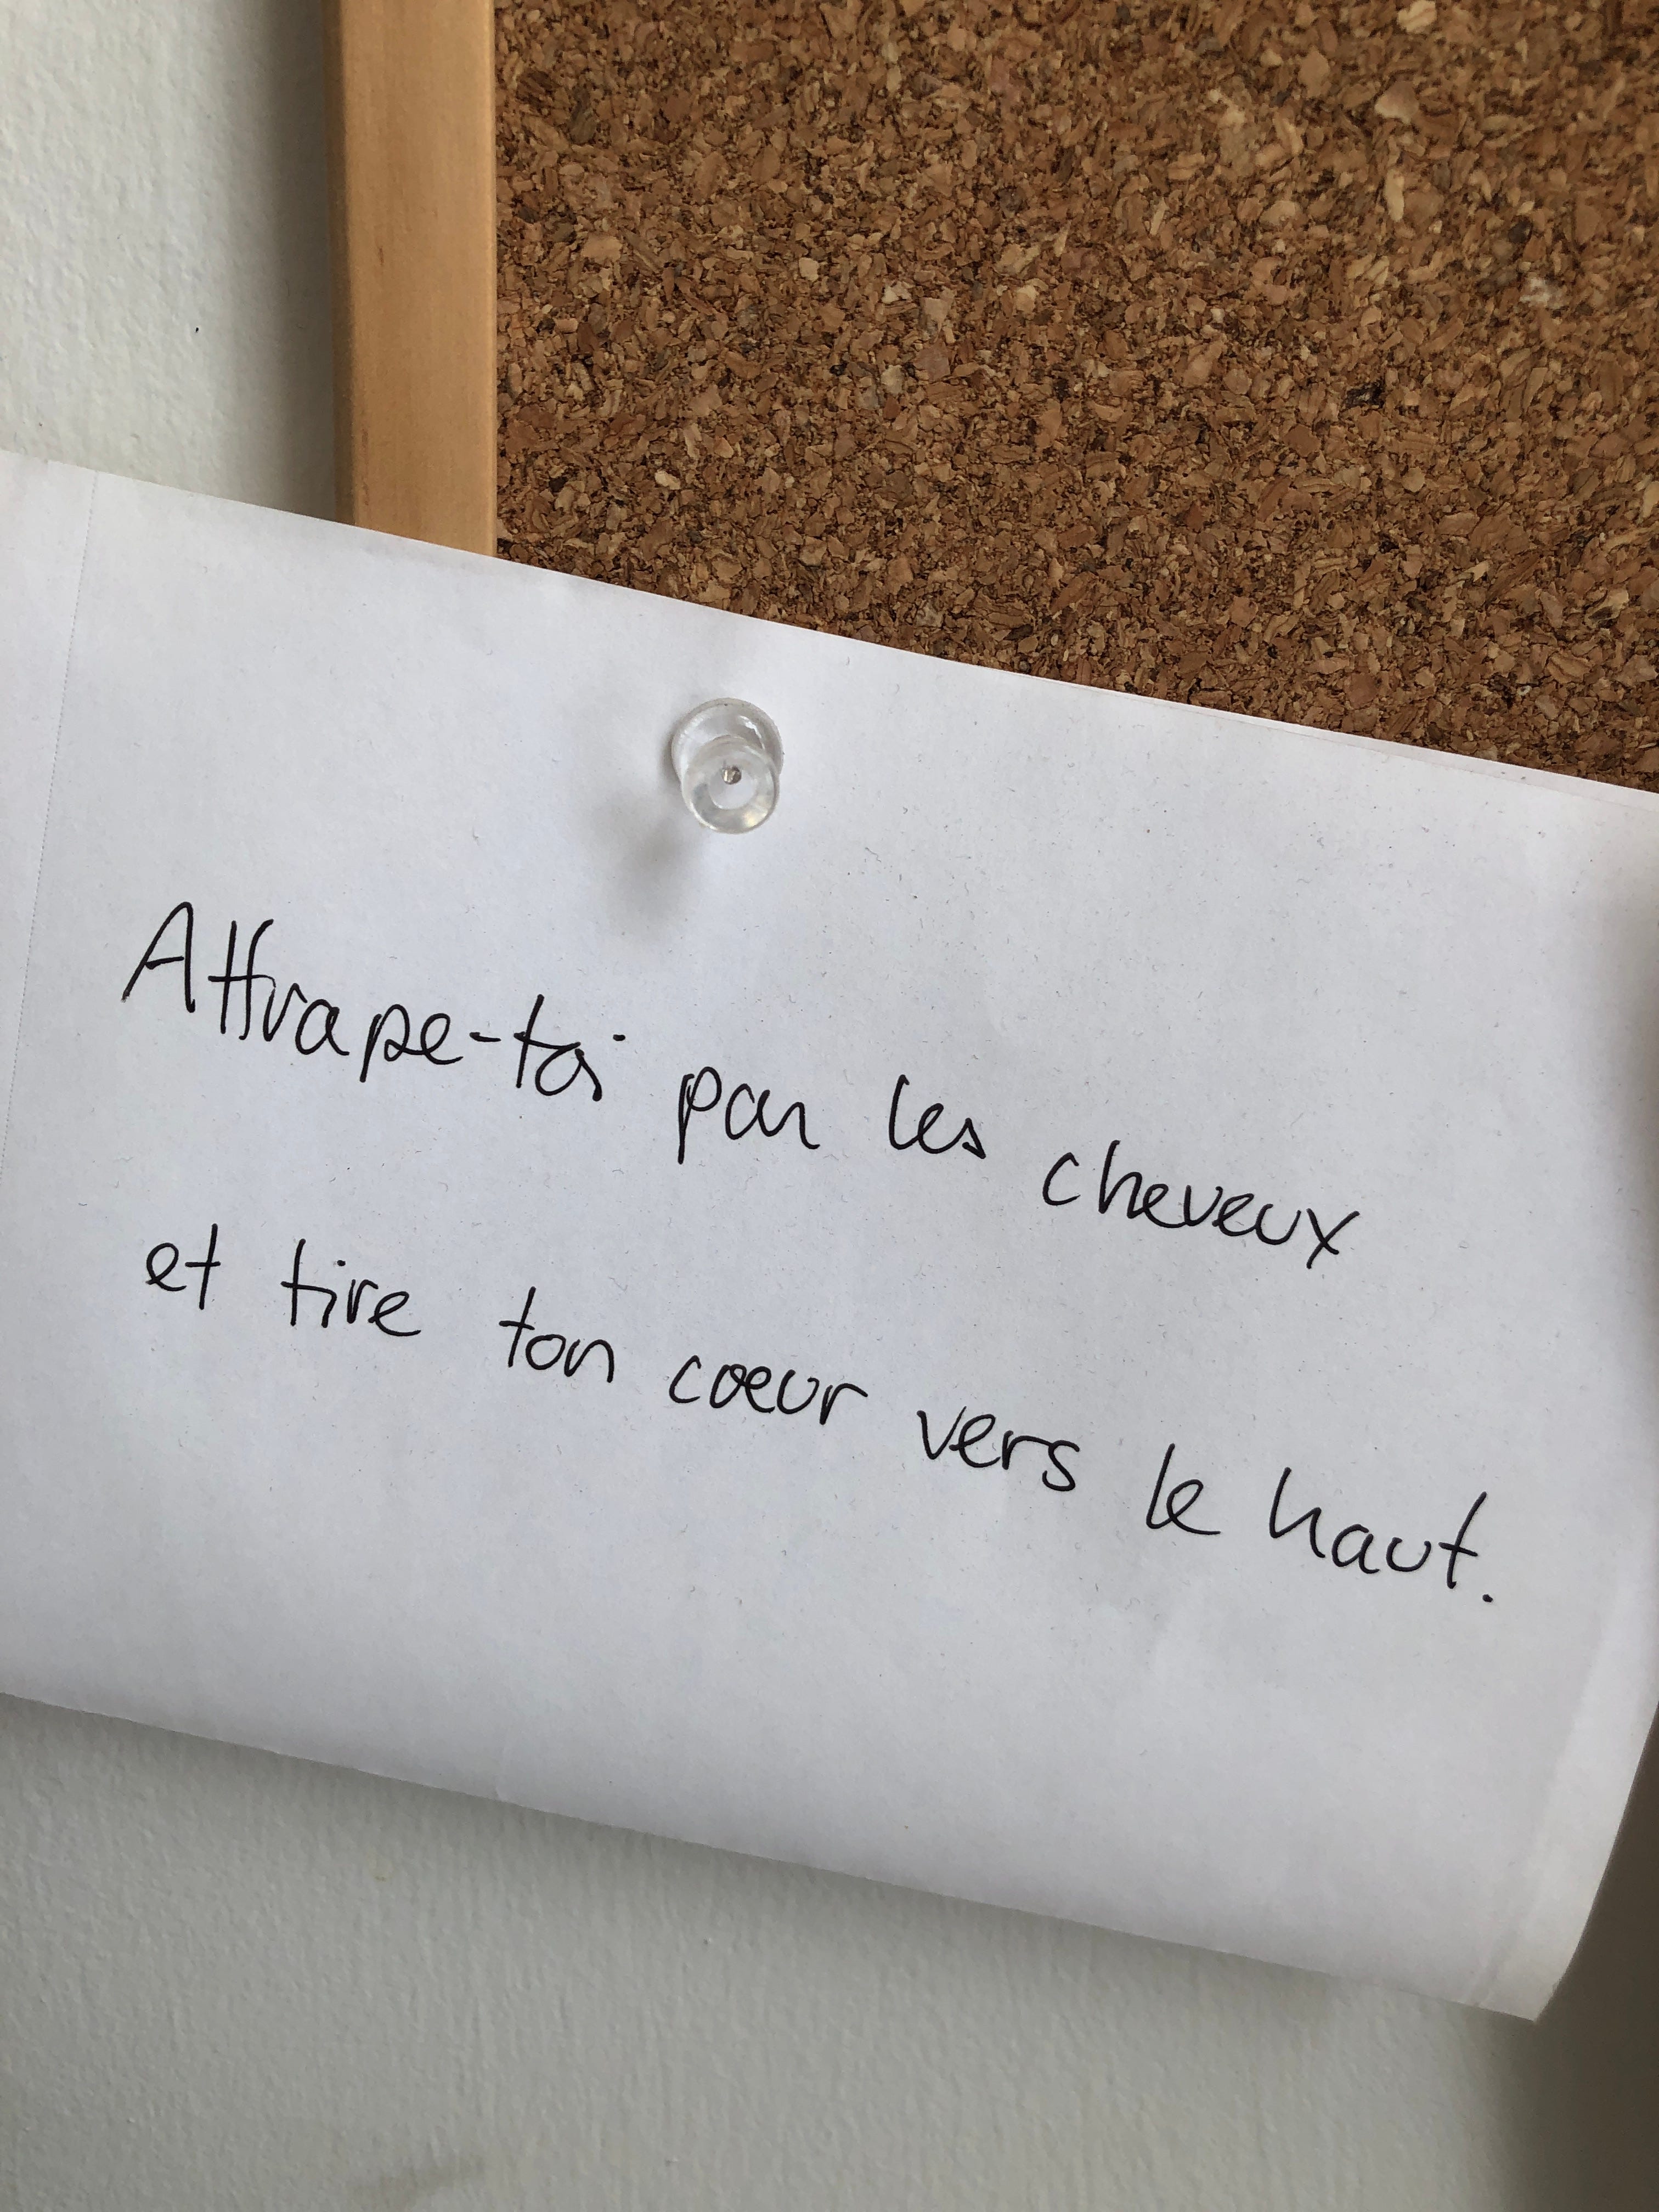 Attrape-toi par les cheveux
et tire ton cœur vers le haut.